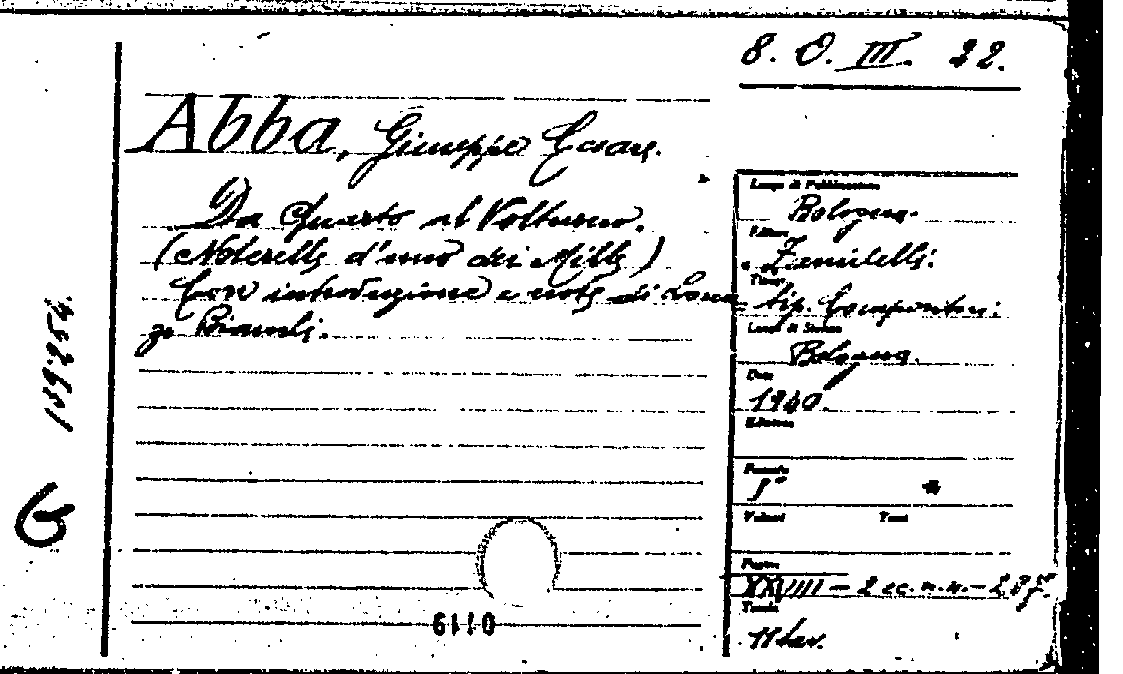 8. O. III. 22.
Abba, Giuseppe Cesare.
Da Quarto al Volturno.
(Noterelle d'uno dei Mille)
Con introduzione e note di Loren=
zo Bianchi.
Luogo di Pubblicazione
Bologna.
Editore
Zanichelli.
Tipogr.
tip. Compositori.
Luogo di Stampa
Bologna.
Data
1940.
Edizione
Formato
8°
Volumi Tomi
Pagine
XXVIIII - 2 cc. n. n. - 287.
Tavole
11 tav.
139254.
G
0119